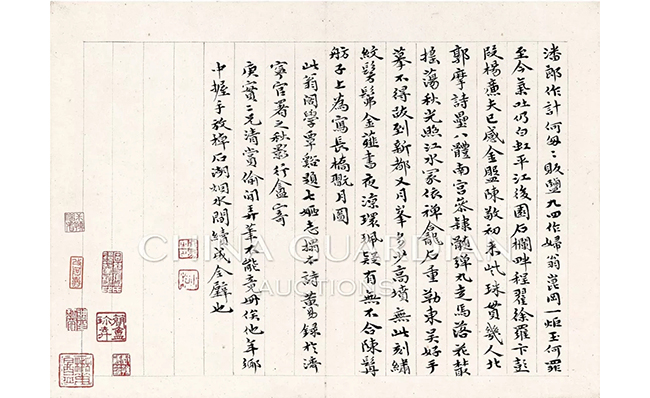 潘郎作計何匆〻販鹽九四作婦翁崑岡一炬玉何罪
至今氣吐仍白虹平江後園石欄畔程翟徐羅卞彭
段楊廉夫已感金盤陳敬初來此珠貫幾人北
郭摩詩壘八體南宮參隸散彈丸走馬落花
搖蕩秋光照江水冢依禪龕石重勒東吳好手
摹不得改到新都又月峯多少高墳無此刻繡
紋髣髴金薤書夜涼環珮疑有無不合陳髯
舫子上為寫長橋翫月圖
此翁閣學覃谿題七姬志搨本詩黃易錄於濟
寧官署之秋影行盦寄
庚實二兄清賞偷閒弄筆不能竟冊俟他年鄉
中握手放棹石湖烟水間續成全璧也
CHINA GUARDIAN
AUCTIONS